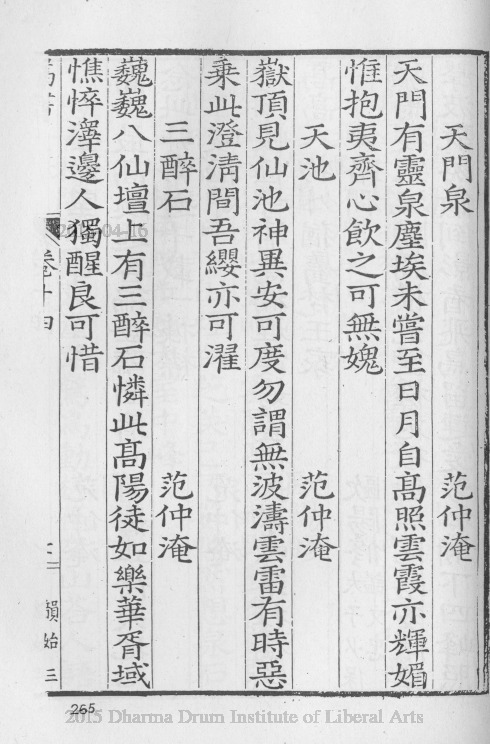 天門泉　范仲淹
天門有靈泉塵埃未嘗至日月自高照雲霞亦輝媚
惟抱夷齊心飲之可無媿
天池　范仲淹
嶽頂見仙池神異安可度勿謂無波濤雲雷有時惡
乘此澄清間吾纓亦可濯
三醉石　范仲淹
巍巍八仙壇上有三醉石憐此高陽徒如樂華胥域
憔悴澤邊人獨醒良可惜
卷十四
韻始三
265
2015 Dharma Drum Institute of Liberal Arts